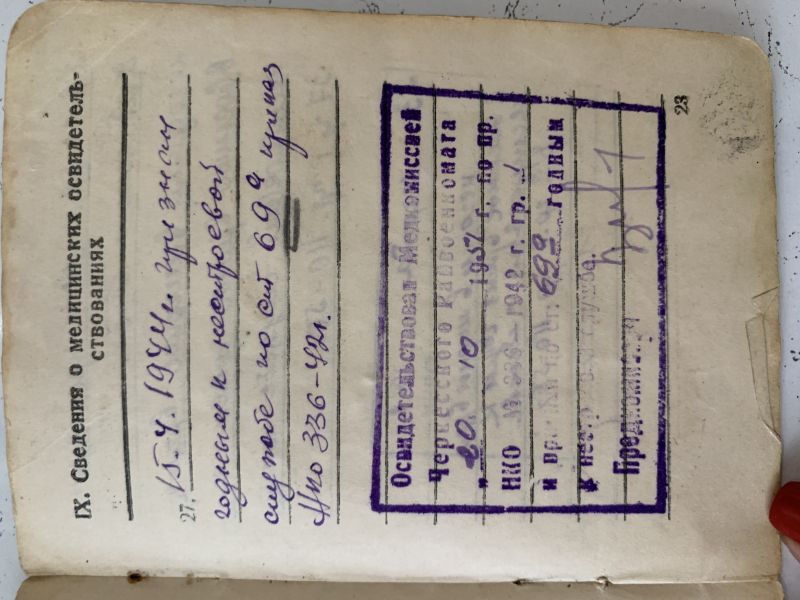 IX. Сведения о медицинских освидетель-
ствованиях
27. 15.V.1944 г признан
годным к нестроевой
службе по ст 69а приказ
Нко 336-42г.
Освидетельствован Медкомиссией
Черкесского Райвоенкомата
„20. 10 1951 г. по пр.
НКО № 336—1942 г. гр. I
и пр. 69а годным
к нестр.
Предкомиссии
23